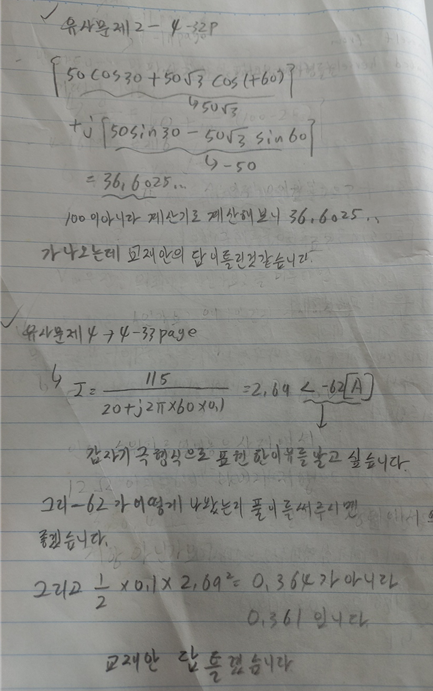 ✓ 유사문제 2 - 4-32P
[50 cos 30 + 50√3 cos(+60)]
↳ 50√3
+j [50 sin 30 - 50√3 sin 60]
↳ -50
= 36.6025...
100이아니라 계산기로 계산해보니 36.6025...
가 나오는데 교재안의 답이틀린것같습니다.
✓ 유사문제 4 → 4-33page
↳ I = 115 / (20+j2π×60×0.1) = 2.69 ∠ -62 [A]
갑자기 극형식으로 표현한이유를 알고 싶습니다.
그리 -62가 어떻게 나왔는지 풀이를써주시면
좋겠습니다.
그리고 1/2 ×0.1×2.69² = 0.364가 아니라
0.361 입니다
교재안 답 틀렸습니다